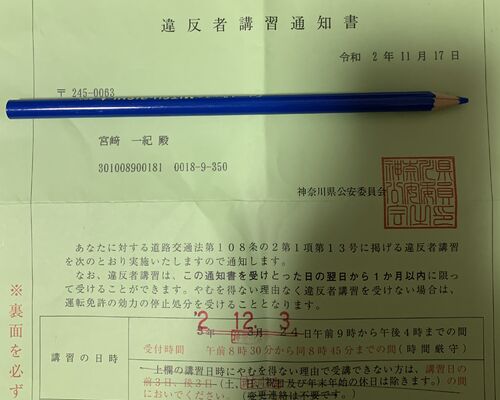 違反者講習通知書
令和 2年11月17日
〒245-0063
宮﨑 一紀 殿
301008900181 0018-9-350
神奈川県公安委員会
神奈川県公安委員会之印
あなたに対する道路交通法第108条の2第1項第13号に掲げる違反者講習
を次のとおり実施いたしますので通知します。
なお、違反者講習は、この通知書を受けとった日の翌日から1か月以内に限っ
て受けることができます。やむを得ない理由なく違反者講習を受けない場合は、
運転免許の効力の停止処分を受けることとなります。
2 12 3
3年 3月 24日午前9時から午後4時までの間
講習の日時
受付時間 午前8時30分から同8時45分までの間(時間厳守)
上欄の講習日時にやむを得ない理由で受講できない方は、講習日の
前3日、後3日(土、日、祝日及び年末年始の休日は除きます。)の間
においでください。(変更連絡は不要です。)
※裏面を必ず